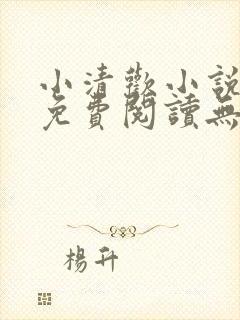 小清歡小說
免費閱讀無
楊升